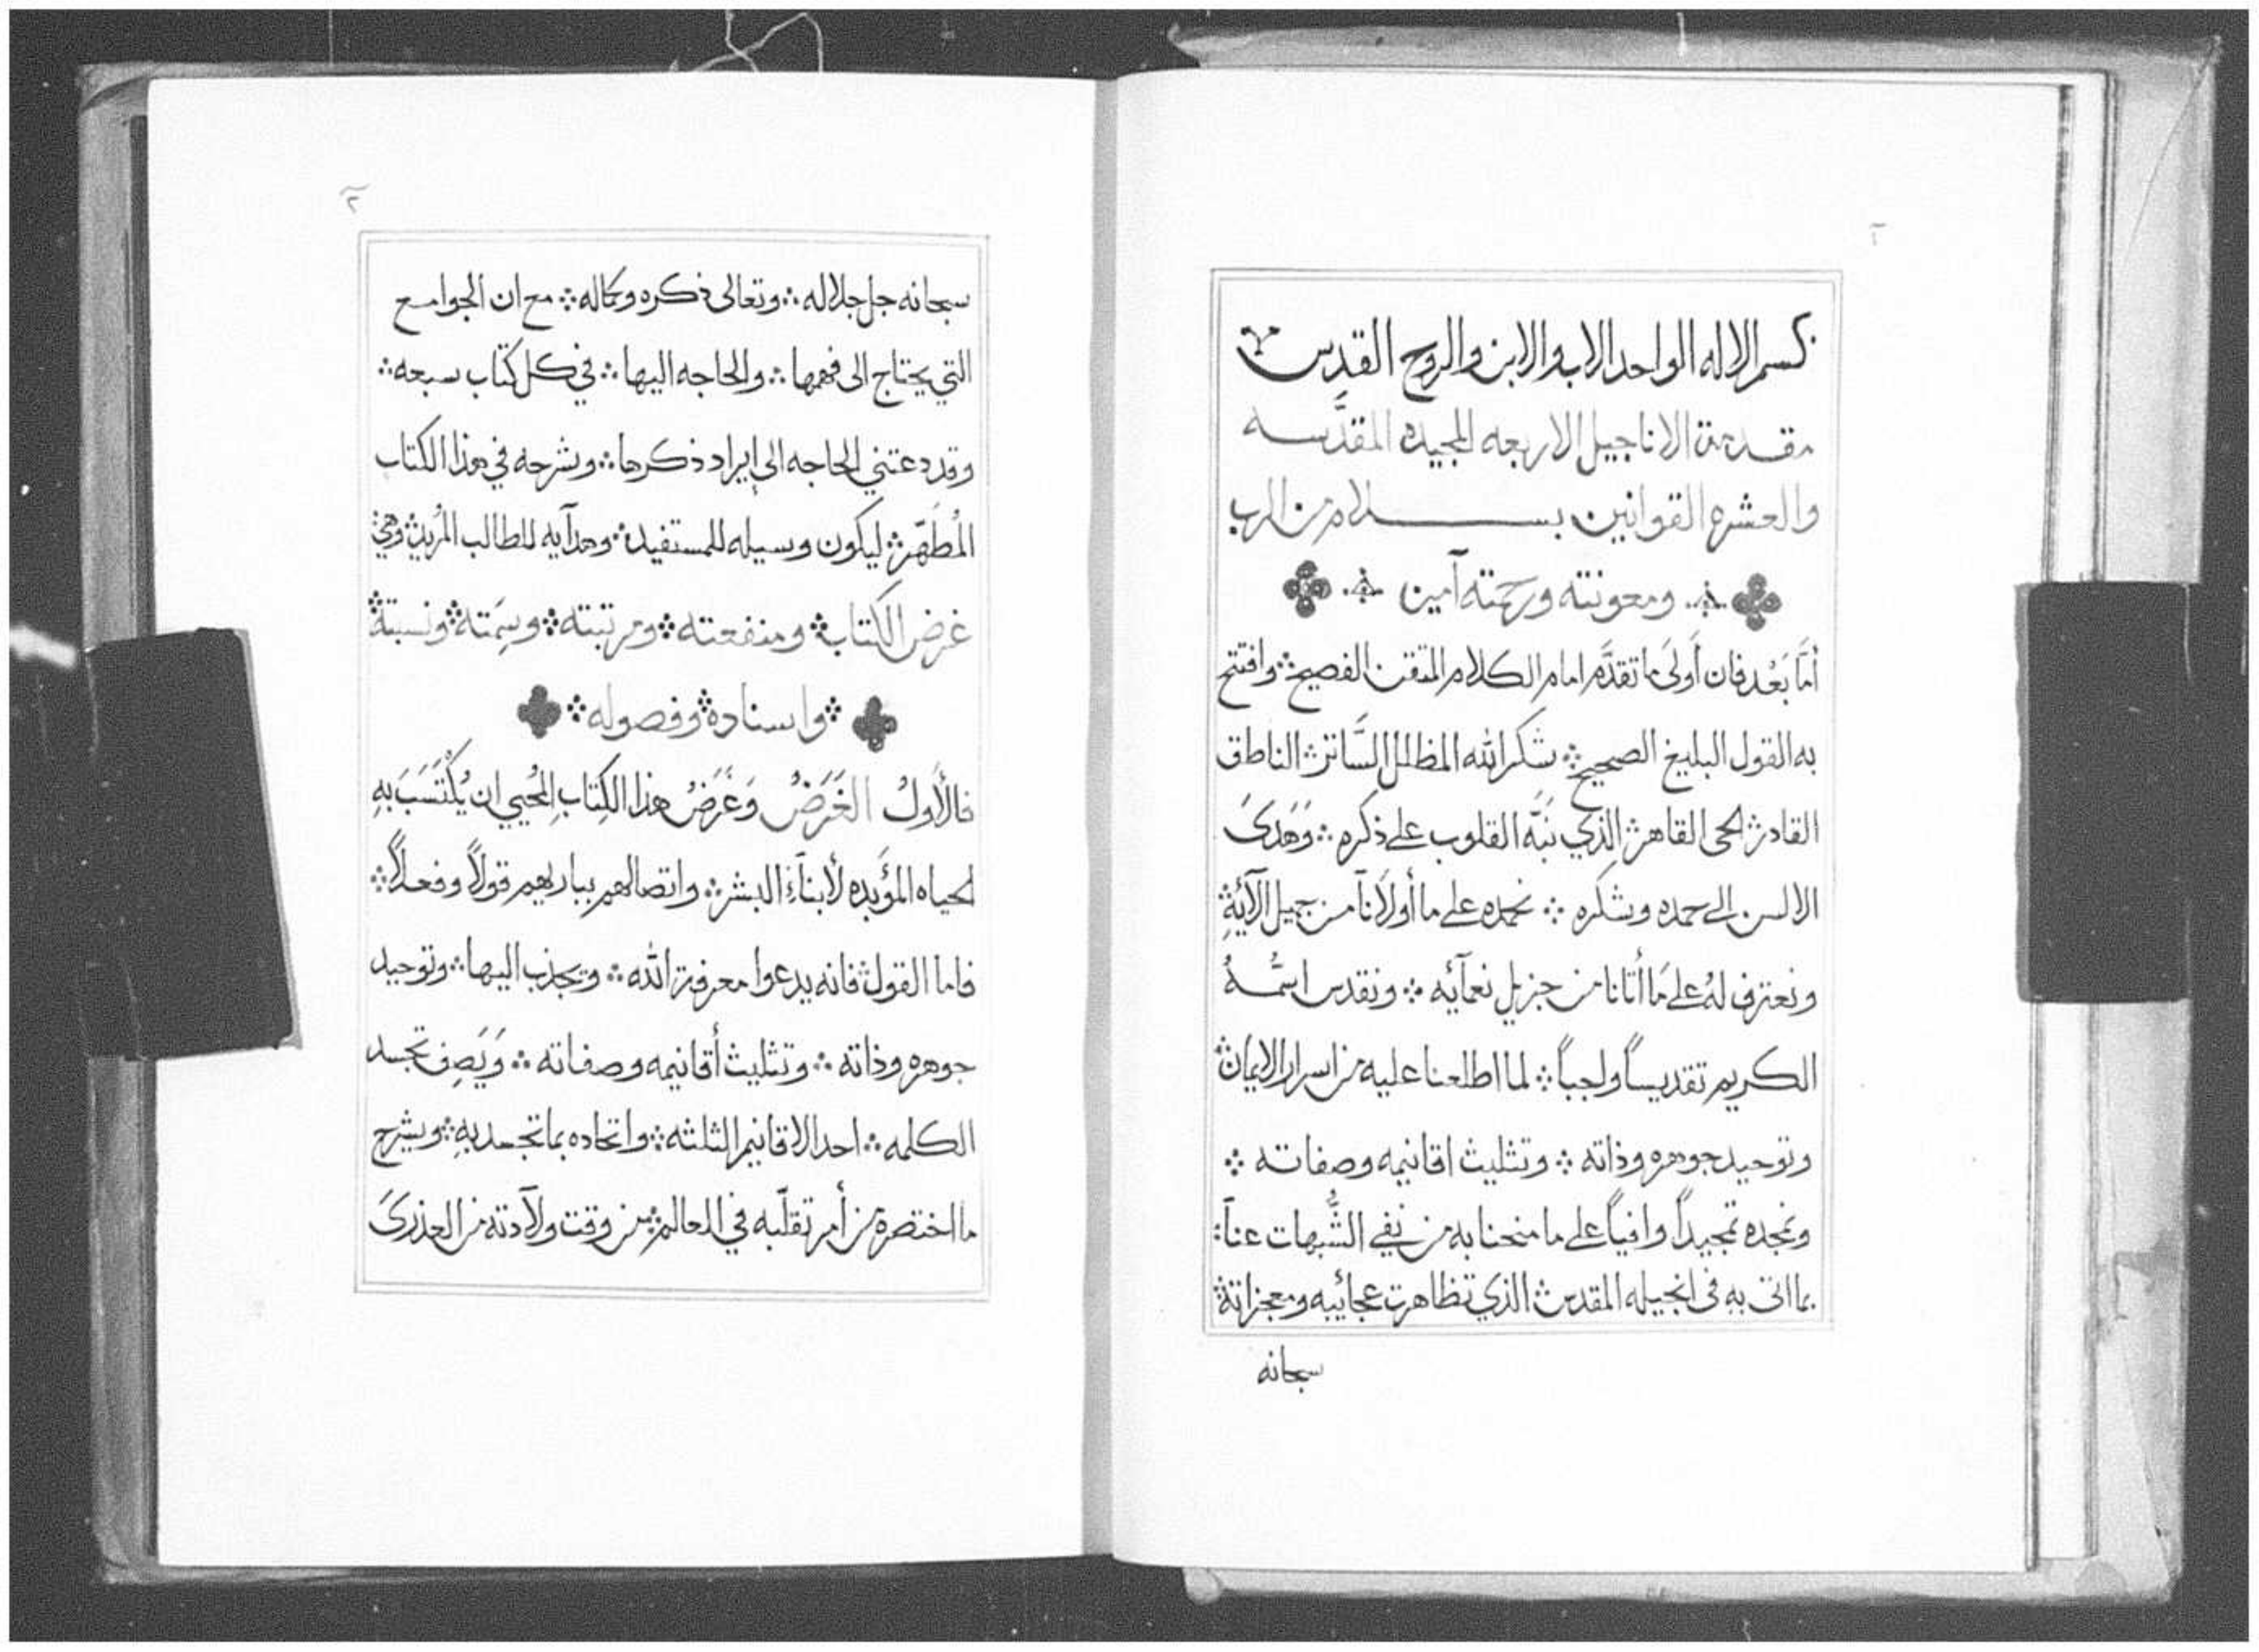 ١
بسم الاله الواحد الاب والابن والروح القدس
مقدمة الاناجيل الاربعه المجيده المقدَّسه
والعشره القوانين بسلام من الرب
ومعونته ورحمته آمين
أمَّا بَعْد فان أولَى ما تقدَّم امام الكلام المتقن الفصيح ۞ وافتتح
به القول البليغ الصحيح ۞ شكر الله المظلل السَّاتر ۞ الناطق
القادر ۞ الحى القاهر ۞ الذي نَبَّه القلوب على ذكره ۞ وَهَدَىَ
الالسن الى حمده وشكره ۞ نحمده على ما أولَانآ من جميل الآئِهِ ۞
ونعترف لهُ على مَا أتانا من جزيل نعمآئه ۞ ونقدس اسْمهُ
الكريم تقديساً واجباً ۞ لما اطلعنا عليه من اسرار الايمان ۞
وتوحيد جوهره وذاته ۞ وتثليث اقانيمه وصفاته ۞
ونمجده تمجيداً وافياً على ما منحنا به من نفي الشُّبهات عناَ ۞
بما اتى بهِ فى انجيله المقدس ۞ الذي تظاهرت عجائبه ومعجزاته ۞
سبحانه
٢
سبحانه جل جلاله ۞ وتعالى ذكره وكماله ۞ مع ان الجوامع
التي يحتاج الى فهمها ۞ والحاجه اليها ۞ في كل كتاب سبعه ۞
وقد دعتني الحاجه الى إيراد ذكرها ۞ وشرحه في هذا الكتاب
المُطَهَّر ۞ ليكون وسيله للمستفيد ۞ وهدآيه للطالب المُريد ۞ وهيَ
غرض الكتاب ۞ ومنفعته ۞ ومرتبته ۞ وسِمَته ۞ ونسبته ۞
۞ واسناده ۞ وفصوله ۞
فالأولُ الغَرَضُ وَغَرَضُ هذا الكِتَابِ المُحيي ان يُكْتَسَبَ بهِ
الحياه المؤَبده لأبنآءِ البشر ۞ واتصالهم بباريهم قولاً وفعلاً ۞
فاما القول ۞ فانه يدعوا معرفة الله ۞ ويجذب اليها ۞ وتوحيد
جوهره وذاته ۞ وتثليث أقانيمه وصفاته ۞ وَيَصِف تجسد
الكلمه ۞ احد الاقانيم الثلثه ۞ واتحاده بما تجسد بهِ ۞ ويشرح
ما اختصره من أمر تقلّبه في العالم ۞ من وقت ولآدته من العذرىَ